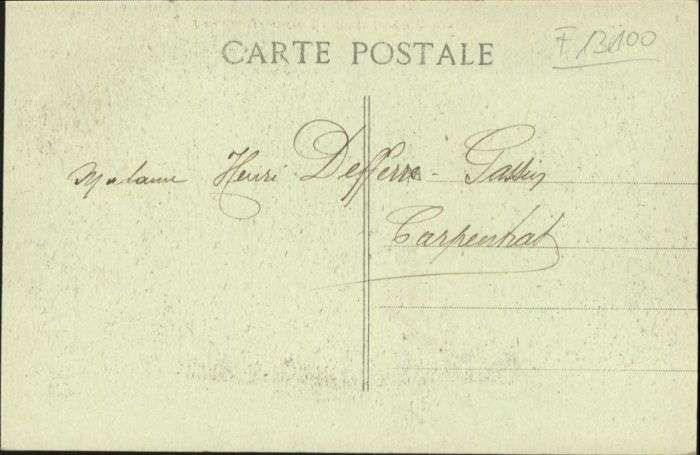 CARTE POSTALE
F 13100
Madame Henri Defferre-Gassin
Carpentras